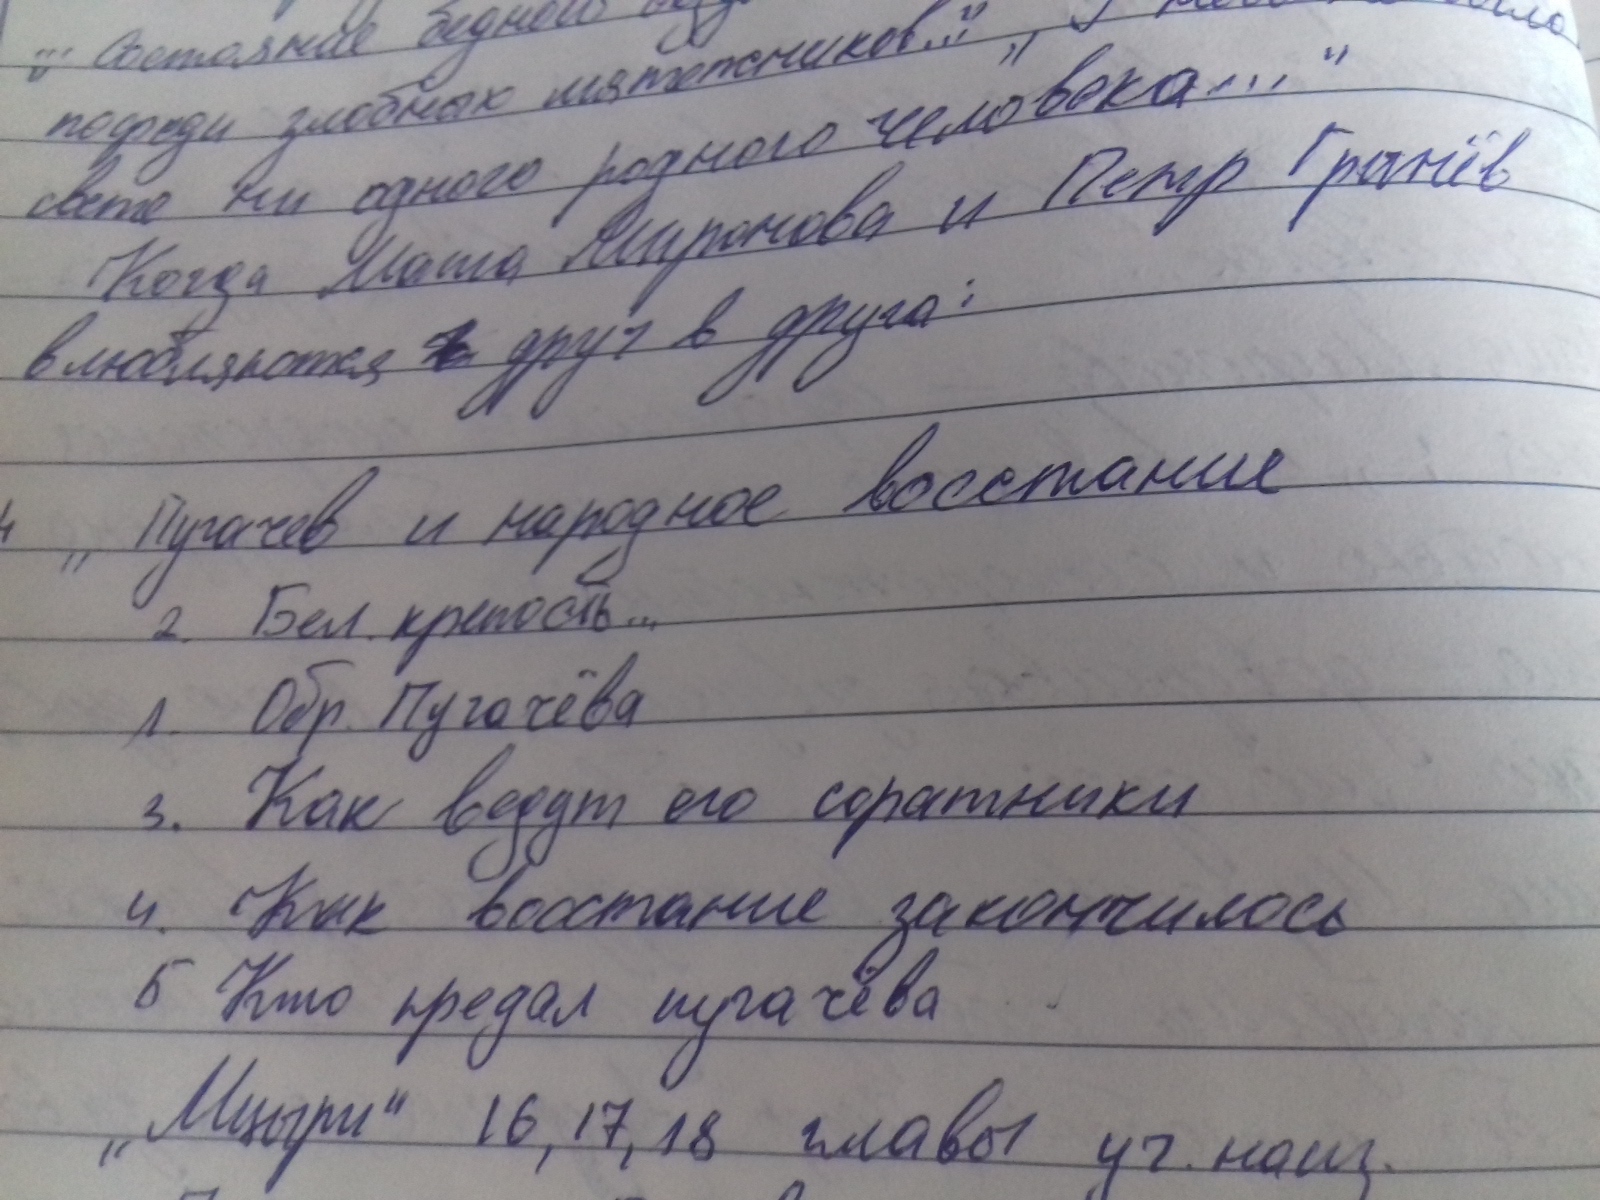 „Состояние бедной
посреди злобных мятежников..." „У него не было
свете ни одного родного человека..."
Когда Маша Миронова и Петр Гринёв
влюбляются друг в друга:
„Пугачев и народное восстание
2. Бел. крепость...
1. Обр. Пугачёва
3. Как ведут его соратники
4. Как восстание закончилось
5 Кто предал пугачёва
„Мцыри" 16, 17, 18 главы уч. наиз.